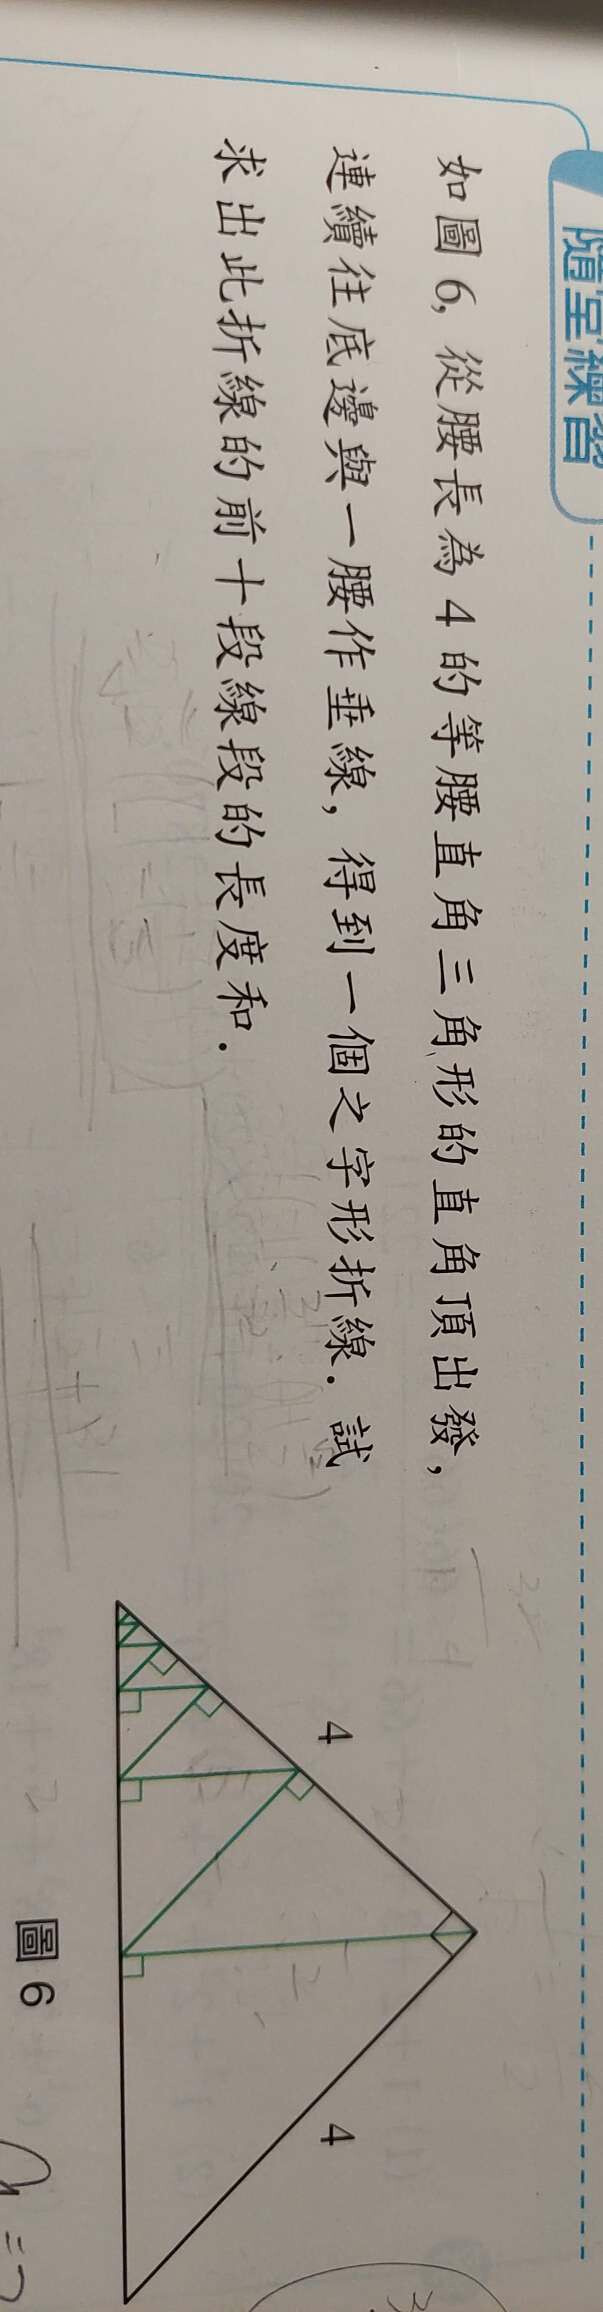 隨堂練習
如圖 6, 從腰長為 4 的等腰直角三角形的直角頂出發,
連續往底邊與一腰作垂線, 得到一個之字形折線. 試
求出此折線的前十段線段的長度和.
4
4
圖 6